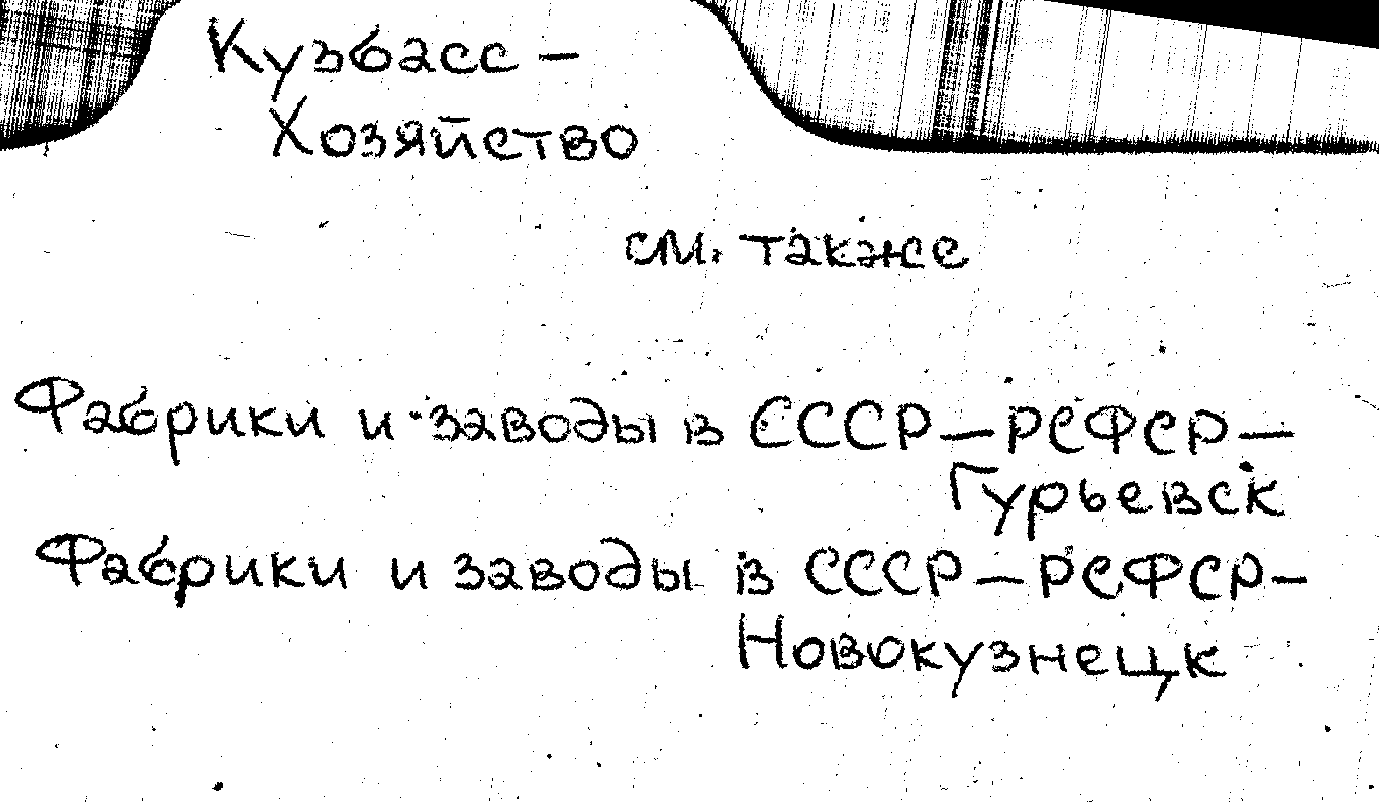 Кузбасс –
Хозяйство
см. также
Фабрики и заводы в СССР – РСФСР –
Гурьевск
Фабрики и заводы в СССР – РСФСР –
Новокузнецк